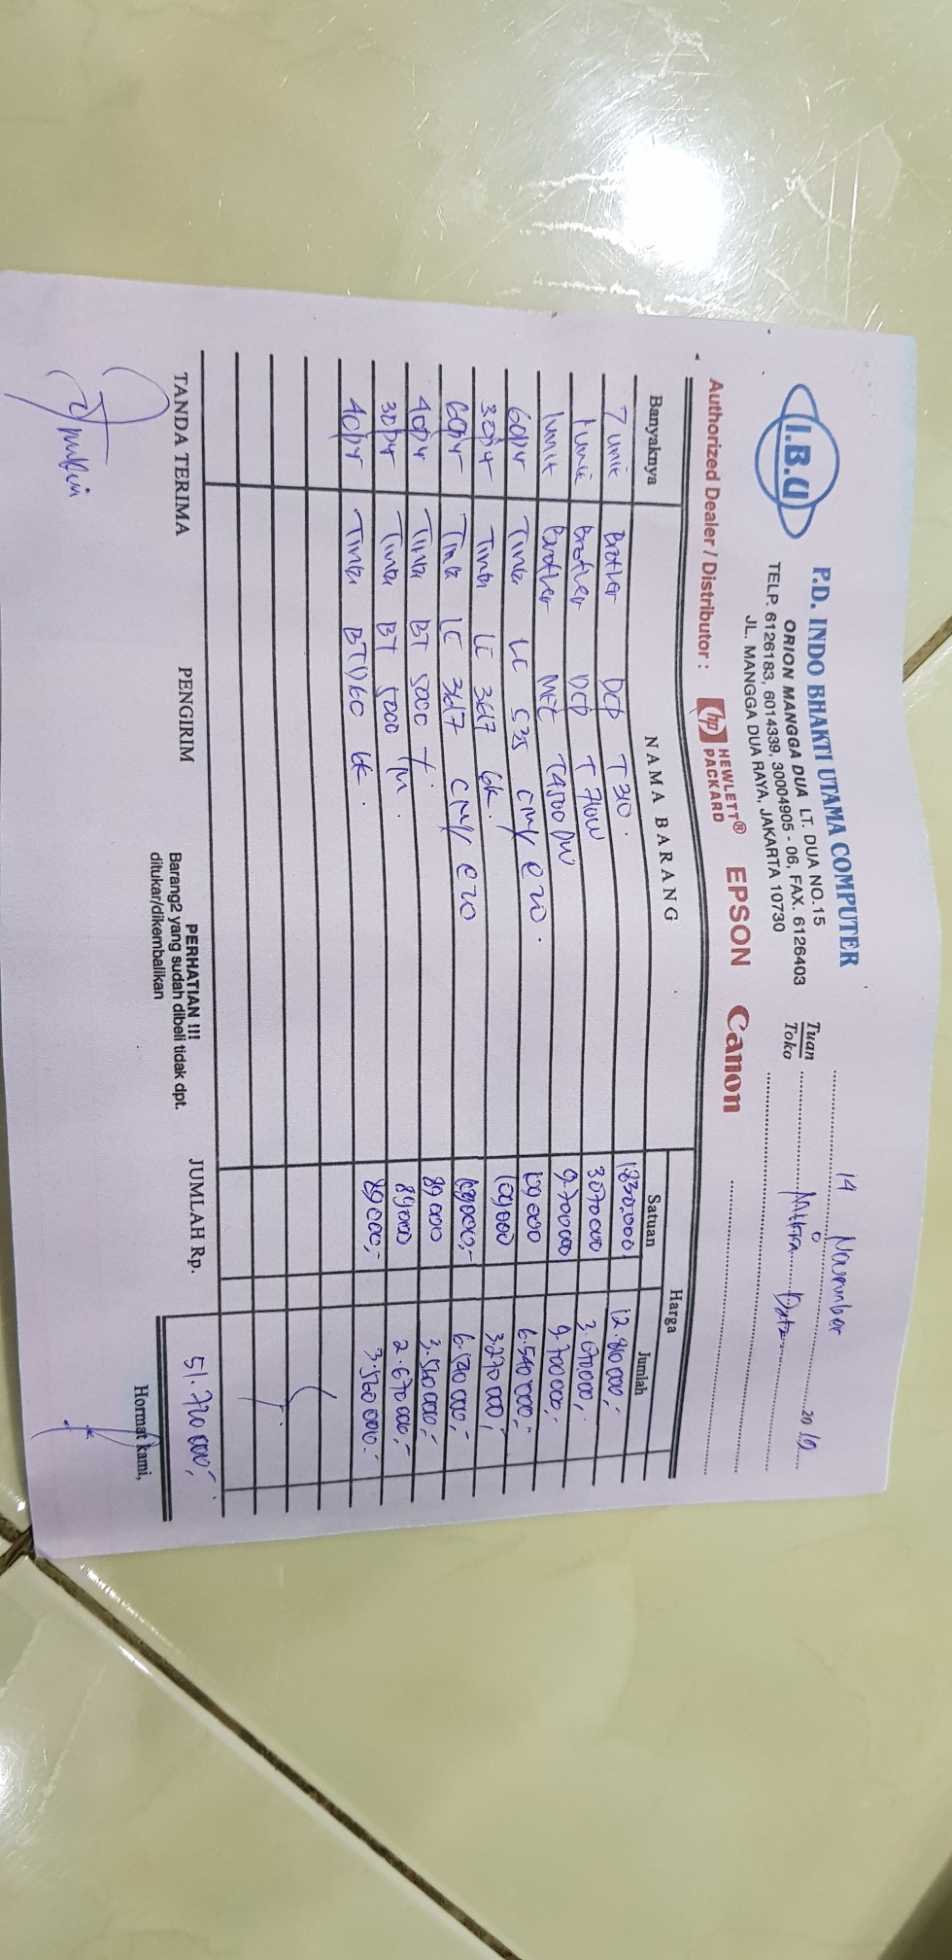 I.B.U
P.D. INDO BHAKTI UTAMA COMPUTER
ORION MANGGA DUA LT. DUA NO.15
TELP. 6126183, 6014339, 30004905 - 06, FAX. 6126403
JL. MANGGA DUA RAYA, JAKARTA 10730
14 November 2019
Tuan
Toko
Mitra Data
Authorized Dealer / Distributor : hp HEWLETT® PACKARD EPSON Canon
Banyaknya NAMA BARANG Harga
Satuan Jumlah
7 unit Brother DCP T310. 1830.000 12.810 000,-
1 unit Brother DCP T 710W 3070 000 3.070.000,-
1 unit Brother MFC T4500 DW 9.700 000 9.700 000,-
60 pcs Tinta LC 535 CMY @ 20. 109 000 6.540 000,-
30 pcs Tinta LC 3617 bk. 109 000 3.270 000,
60 pcs Tinta LC 3617 CMY @ 20 109 000,- 6.540 000,-
40 pcs Tinta BT 5000 Y. 89 000 3.560 000,-
30 pcs Tinta BT 5000 M 89 000 2.670 000,-
40 pcs Tinta BTD60 bk. 89 000,- 3.560 000.-
TANDA TERIMA PENGIRIM
PERHATIAN !!!
Barang2 yang sudah dibeli tidak dpt.
ditukar/dikembalikan
JUMLAH Rp. 51.720 000,-
Hormat kami,